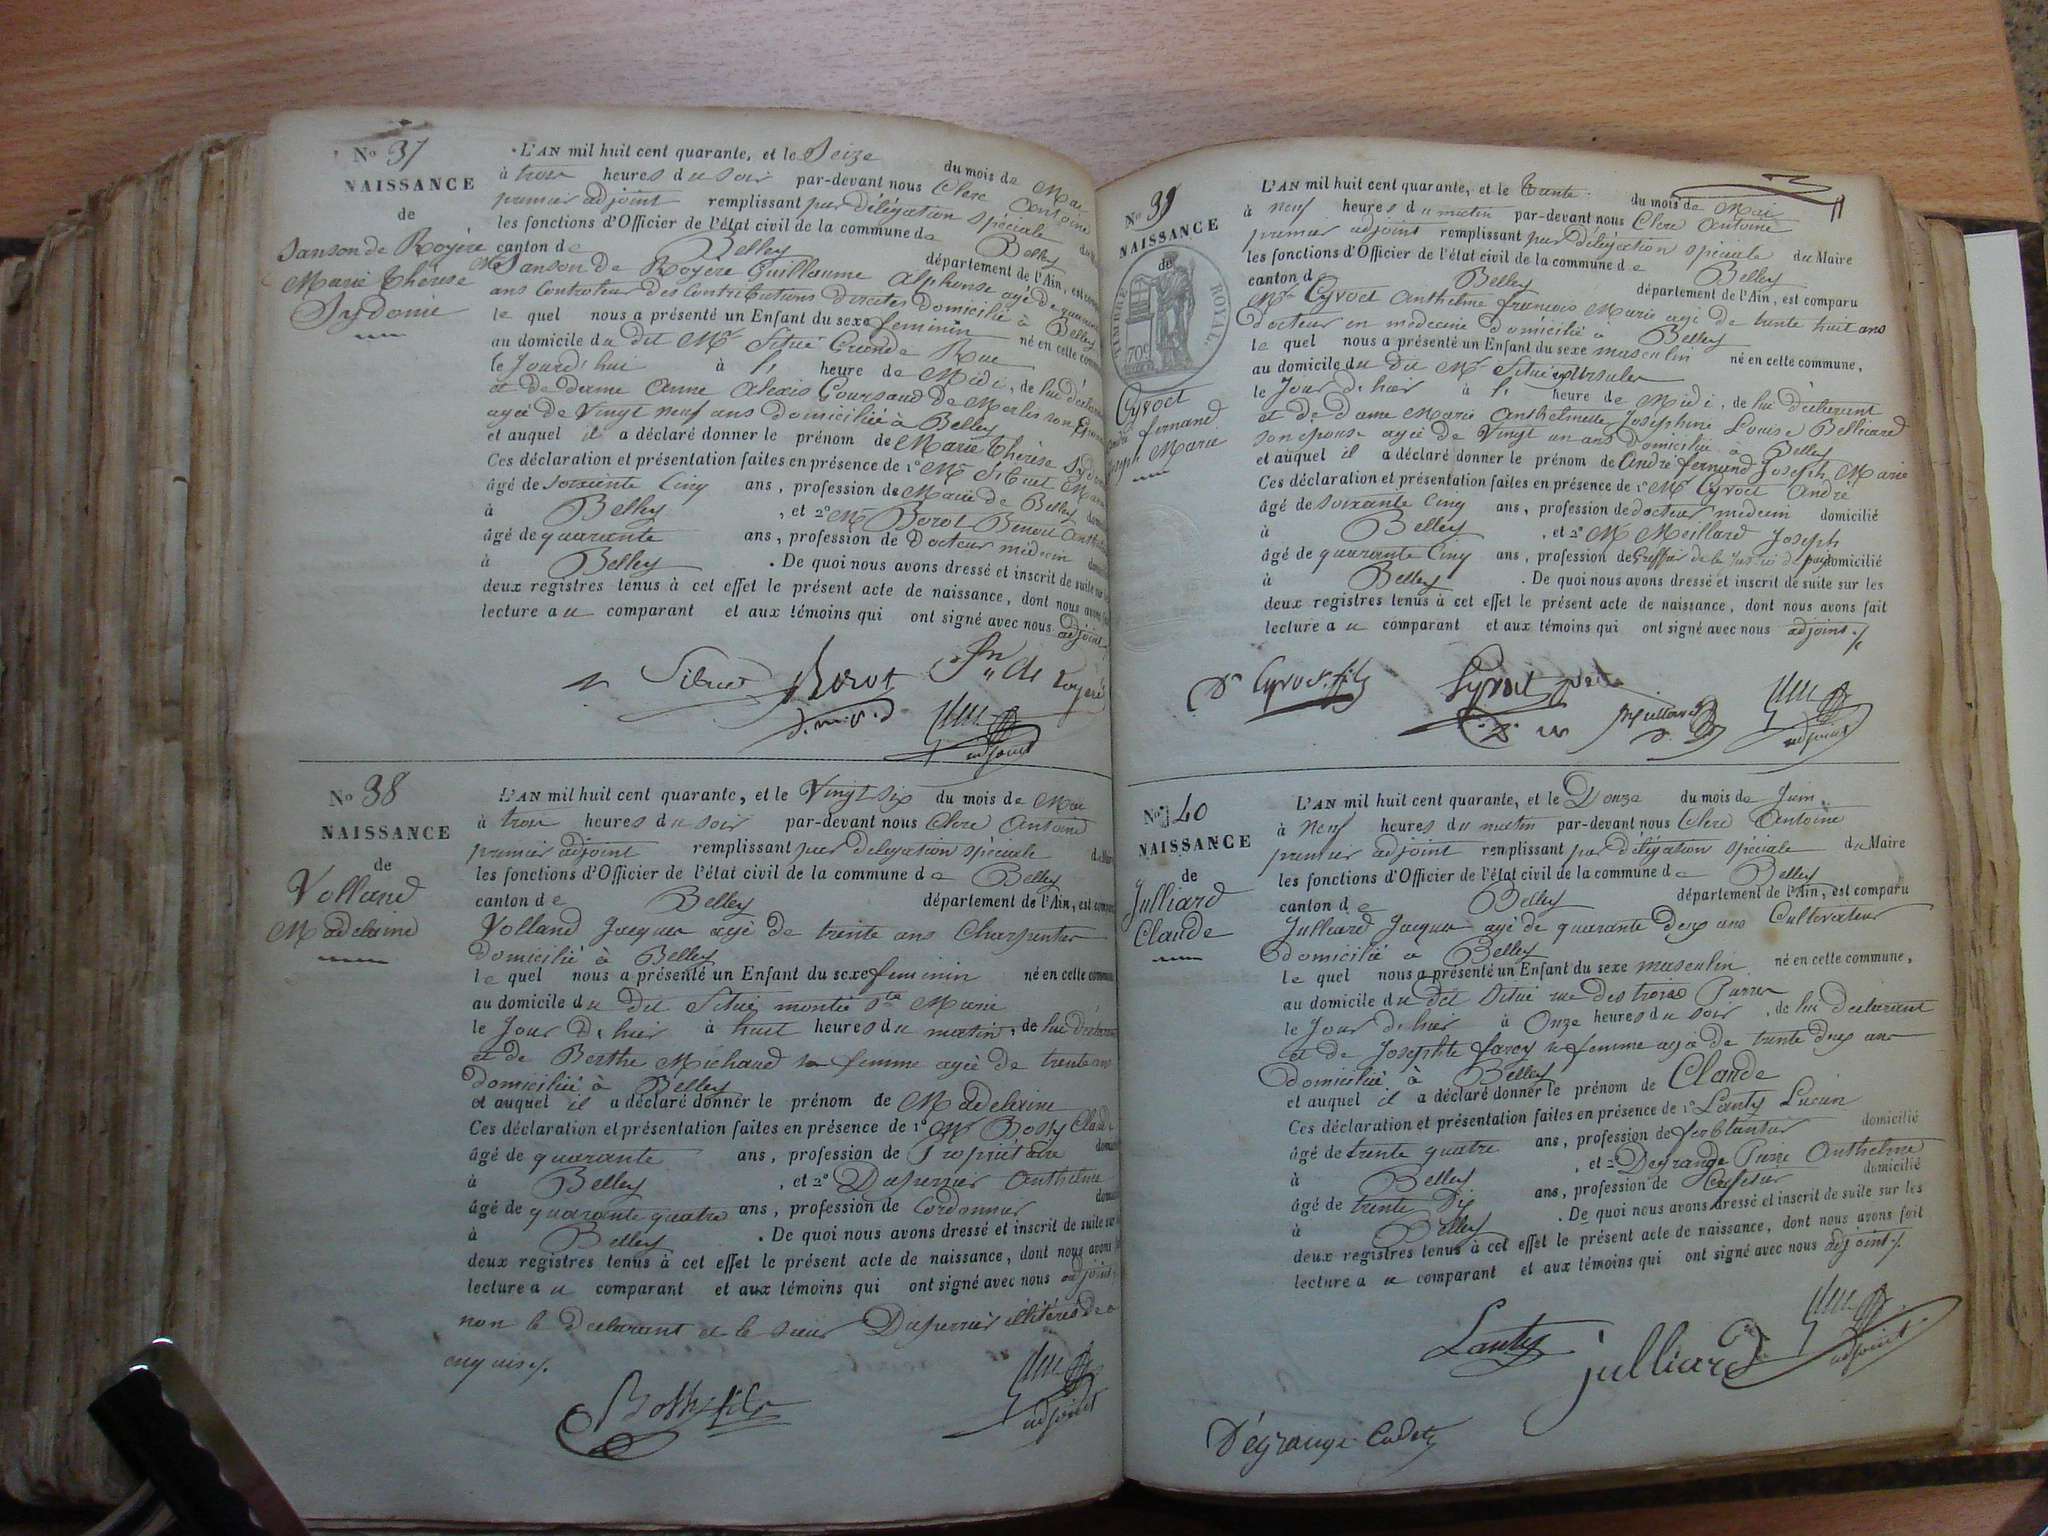 No 37
NAISSANCE
de
Sanson de Royère
Marie Thérèse
Sydonie
L'AN mil huit cent quarante, et le Seize du mois de Mai
à trois heures du soir par-devant nous Clerc Antoine
premier adjoint remplissant par délégation spéciale du
les fonctions d'Officier de l'état civil de la commune de Belley
canton de Belley département de l'Ain, est
Mr Sanson de Royère Guillaume Alphonse agé de quarante
ans Controleur des Contributions directes domicilié à Belley
le quel nous a présenté un Enfant du sexe feminin né en cette
au domicile du dit Mr Situé Grande Rue
le Jourd'hui à heure de Midi, de lui
et de dame Anne Alexis Goursaud de Merlis son
agée de Vingt neuf ans domiciliée à Belley
et auquel il a déclaré donner le prénom de Marie Thérèse
Ces déclaration et présentation faites en présence de 1o Mr Sibuet
âgé de soixante Cinq ans, profession de Maire de Belley
à Belley, et 2o Mr Borot Benoit
âgé de quarante ans, profession de Docteur médecin
à Belley. De quoi nous avons dressé et inscrit de suite
deux registres tenus à cet effet le présent acte de naissance, dont nous
lecture au comparant et aux témoins qui ont signé avec nous adjoint
Sibuet Borot de Royere
adjoint
No 38
NAISSANCE
de
Volland
Madeleine
L'AN mil huit cent quarante, et le Vingt six du mois de Mai
à trois heures du soir par-devant nous Clerc Antoine
premier adjoint remplissant par delegation spéciale
les fonctions d'Officier de l'état civil de la commune de Belley
canton de Belley département de l'Ain, est
Volland Jacques agé de trente ans Charpentier
domicilié à Belley
le quel nous a présenté un Enfant du sexe feminin né en cette
au domicile du dit Situé montée Ste Marie
le Jour d'hier à huit heures du matin, de lui
et de Berthe Michaud sa femme agée de trente ans
domiciliée à Belley
et auquel il a déclaré donner le prénom de Madeleine
Ces déclaration et présentation faites en présence de 1o Mr
âgé de quarante ans, profession de Propriétaire
à Belley, et 2o Duperrier Anthelme
âgé de quarante quatre ans, profession de Cordonnier
à Belley. De quoi nous avons dressé et inscrit de suite
deux registres tenus à cet effet le présent acte de naissance, dont nous avons
lecture au comparant et aux témoins qui ont signé avec nous adjoint
non le declarant et le sieur Duperrier illitérés de ce
enquis
adjoint
No 39
NAISSANCE
de
TIMBRE ROYAL
70c
Cyvoct
André fernand
Joseph Marie
L'AN mil huit cent quarante, et le trente du mois de Mai
à neuf heures du matin par-devant nous Clerc Antoine
premier adjoint remplissant par délégation spéciale du Maire
les fonctions d'Officier de l'état civil de la commune de Belley
canton de Belley département de l'Ain, est comparu
Mr Cyvoct Anthelme francois Marie agé de trente huit ans
docteur en médecine domicilié à Belley
le quel nous a présenté un Enfant du sexe masculin né en cette commune,
au domicile du dit Mr Situé
le Jour d'hier à heure de Midi, de lui déclarant
et de dame Marie Anthelmette Joséphine Louise Belliard
son épouse agée de Vingt un ans domiciliée à Belley
et auquel il a déclaré donner le prénom de André fernand Joseph Marie
Ces déclaration et présentation faites en présence de 1o Mr Cyvoct André
âgé de soixante Cinq ans, profession de docteur médecin domicilié
à Belley, et 2o Mr Meillard Joseph
âgé de quarante Cinq ans, profession de Greffier de la Justice de paix domicilié
à Belley. De quoi nous avons dressé et inscrit de suite sur les
deux registres tenus à cet effet le présent acte de naissance, dont nous avons fait
lecture au comparant et aux témoins qui ont signé avec nous adjoint
Dr Cyvoct fils Cyvoct
adjoint
No 40
NAISSANCE
de
Julliard
Claude
L'AN mil huit cent quarante, et le Douze du mois de Juin
à Neuf heures du matin par-devant nous Clerc Antoine
premier adjoint remplissant par délégation spéciale du Maire
les fonctions d'Officier de l'état civil de la commune de Belley
canton de Belley département de l'Ain, est comparu
Julliard Jacques agé de quarante deux ans Cultivateur
domicilié à Belley
le quel nous a présenté un Enfant du sexe masculin né en cette commune,
au domicile du dit Situé rue des trois
le Jour d'hier à Onze heures du soir, de lui declarant
et de Josephte farcy sa femme agée de trente deux ans
domiciliée à Belley
et auquel il a déclaré donner le prénom de Claude
Ces déclaration et présentation faites en présence de 1o Lanty Lucien
âgé de trente quatre ans, profession de ferblantier domicilié
à Belley, et 2o Degrange Pierre Anthelme
âgé de trente Six ans, profession de domicilié
à Belley. De quoi nous avons dressé et inscrit de suite sur les
deux registres tenus à cet effet le présent acte de naissance, dont nous avons fait
lecture au comparant et aux témoins qui ont signé avec nous adjoint
Lanty julliard
adjoint
Dégrange Cadet